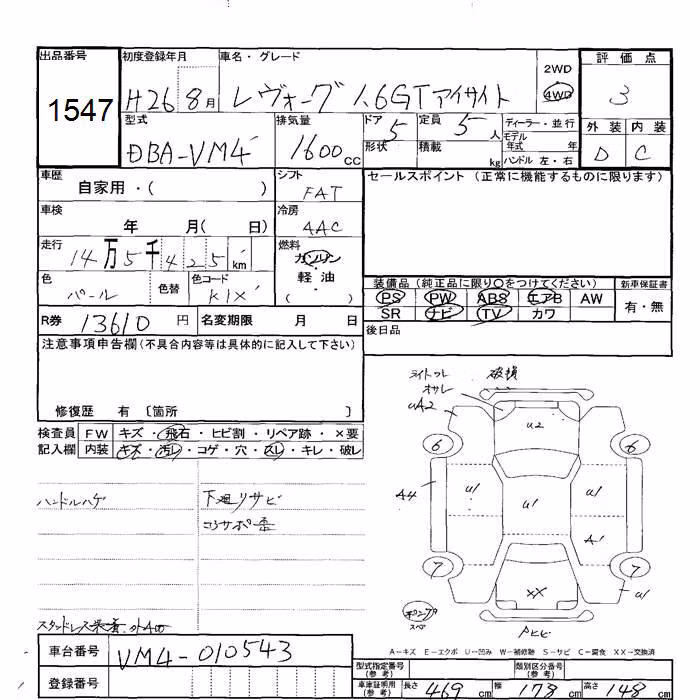 出品番号
1547
初度登録年月
H26 8月
車名・グレード
レヴォーグ 1.6GTアイサイト
2WD
4WD
評価点
3
外装 内装
D C
型式
DBA-VM4
排気量
1600cc
ドア 5
形状
定員 5人
積載 kg
ディーラー・並行
モデル年式 年
ハンドル 左・右
車歴
自家用・( )
シフト
FAT
セールスポイント (正常に機能するものに限ります)
車検
年 月( 日)
冷房
AAC
走行
14万5千425km
燃料
ガソリン
軽・油
( )
色
パール
色替
色コード
K1X
装備品 (純正品に限り○をつけてください)
PS PW ABS エアB AW
SR ナビ TV カワ
新車保証書
有・無
R券 13610円
名変期限 月 日
後日品
注意事項申告欄(不具合内容等は具体的に記入して下さい)
修復歴 有 [箇所 ]
検査員記入欄
FW キズ・飛石・ヒビ割・リペア跡・×要
内装 キズ・汚レ・コゲ・穴・スレ・キレ・破レ
ハンドルハゲ
下廻リサビ
コアサポ歪
ライトワレ
オサレ
破損
uA2
u2
6 6
A4
u1
u1
u1
A1
7 7
XX
u1
スペア
Aキズ Eエクボ U凹み W補修跡 Sサビ C腐食 XX交換済
車台番号
VM4-010543
登録番号
型式指定番号(参考)
類別区分番号(参考)
車庫証明用(参考)
長さ 469cm
幅 178cm
高さ 148cm